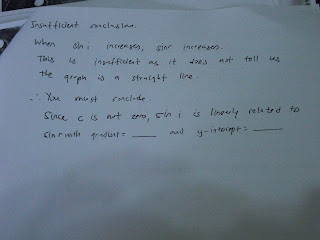 Insufficient conclusion.
When sin i increases, sin r increases.
This is insufficient as it does not tell us
the graph is a straight line.
∴ You must conclude.
Since c is not zero, sin i is linearly related to
sin r with gradient = ____ and y-intercept = ____